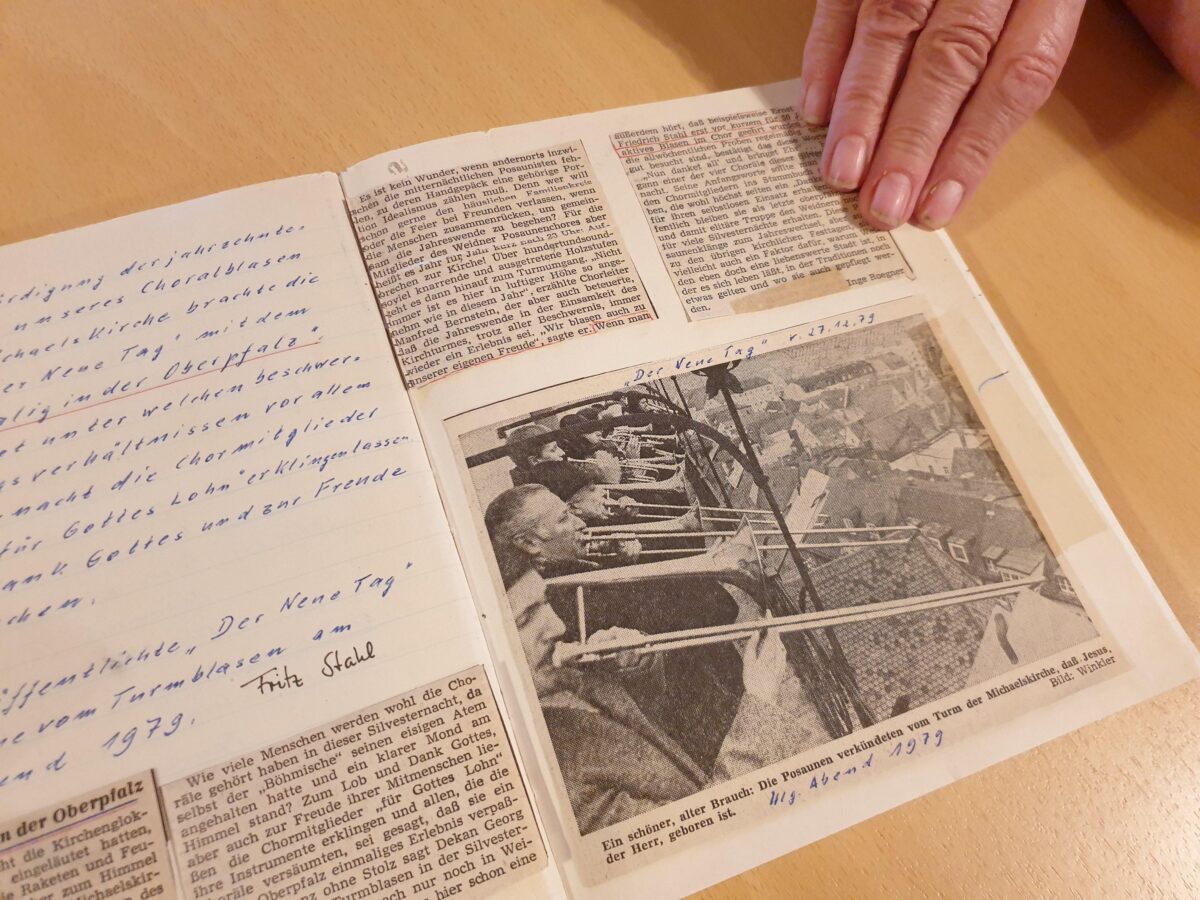 rdigung der jahrzehnte-
unseres Choralblasen
chaelskirche brachte die
er Neue Tag" mit dem
alig in der Oberpfalz".
et unter welchen beschwer-
gsverhältnissen vor allem
nacht die Chormitglieder
für Gottes Lohn" erklingen lassen
ank Gottes und zur Freude
chen.
öffentlichte „Der Neue Tag"
me vom Turmblasen am
end 1979.
Fritz Stahl
n der Oberpfalz
ht die Kirchenglok-
eingeläutet hatten,
ie Raketen und Feu-
er zum Himmel
Michaelskir-
des
Wie viele Menschen werden wohl die Cho-
räle gehört haben in dieser Silvesternacht, da
selbst der „Böhmische" seinen eisigen Atem
angehalten hatte und ein klarer Mond am
Himmel stand? Zum Lob und Dank Gottes,
aber auch zur Freude ihrer Mitmenschen lie-
ßen die Chormitglieder „für Gottes Lohn"
ihre Instrumente erklingen und allen, die die
Choräle versäumten, sei gesagt, daß sie ein
Oberpfalz einmaliges Erlebnis verpaß-
nz ohne Stolz sagt Dekan Georg
Turmblasen in der Silvester-
ach nur noch in Wei-
hier schon eine
2
Es ist kein Wunder, wenn andernorts inzwi-
schen die mitternächtlichen Posaunisten feh-
len, zu deren Handgepäck eine gehörige Por-
tion Idealismus zählen muß. Denn wer will
schon gerne den häuslichen Familienkreis
oder die Feier bei Freunden verlassen, wenn
die Menschen zusammenrücken, um gemein-
sam die Jahreswende zu begehen? Für die
Mitglieder des Weidner Posaunenchores aber
heißt es Jahr für Jahr kurz nach 23 Uhr: Auf-
brechen zur Kirche! Über hundertundsound-
soviel knarrende und ausgetretene Holzstufen
geht es dann hinauf zum Turmumgang. „Nicht
immer ist es hier in luftiger Höhe so ange-
nehm wie in diesem Jahr", erzählte Chorleiter
Manfred Bernstein, der aber auch beteuerte,
daß die Jahreswende in der Einsamkeit des
Kirchturmes, trotz aller Beschwernis, immer
wieder ein Erlebnis sei. „Wir blasen auch zu
unserer eigenen Freude", sagte er. Wenn man
außerdem hört, daß beispielsweise Ernst
Friedrich Stahl erst vor kurzem für 50 J
aktives Blasen im Chor geehrt wurde
die allwöchentlichen Proben regelmäßig
gut besucht sind, bestätigt das diese Wor
„Nun danket all' und bringet Ehr
gann einer der vier Choräle dieser Silves
nacht. Seine Anfangsworte sollte man
den Chormitgliedern ins Stammbuch
ben, die wohl höchst selten ein „Danke
für ihren selbstlosen Einsatz ernten
fentlich bleiben sie als letzte oberpfäl
und damit elitäre Truppe den Weidnern
für viele Silvesternächte erhalten. Die
saunenklänge zum Jahreswechsel, aber
zu den übrigen kirchlichen Festtagen
vielleicht auch ein Faktor dafür, warum
den eben doch eine liebenswerte Stadt ist, in
der es sich leben läßt, in der Traditionen noch
etwas gelten und wo sie auch gepflegt wer-
den.
Inge Roegner
„Der Neue Tag" v. 27.12.79
Ein schöner, alter Brauch: Die Posaunen verkündeten vom Turm der Michaelskirche, daß Jesus,
der Herr, geboren ist.
Bild: Winkler
Hlg. Abend 1979